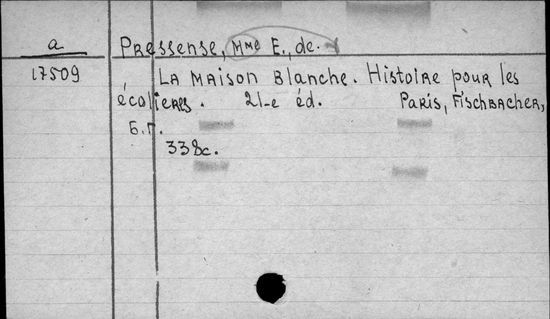 a
Pressense, Mme E., de.
17509
La Maison Blanche. Histoire pour les
écolieres. 21-e éd. Paris, Fischbacher,
б.г.
338c.